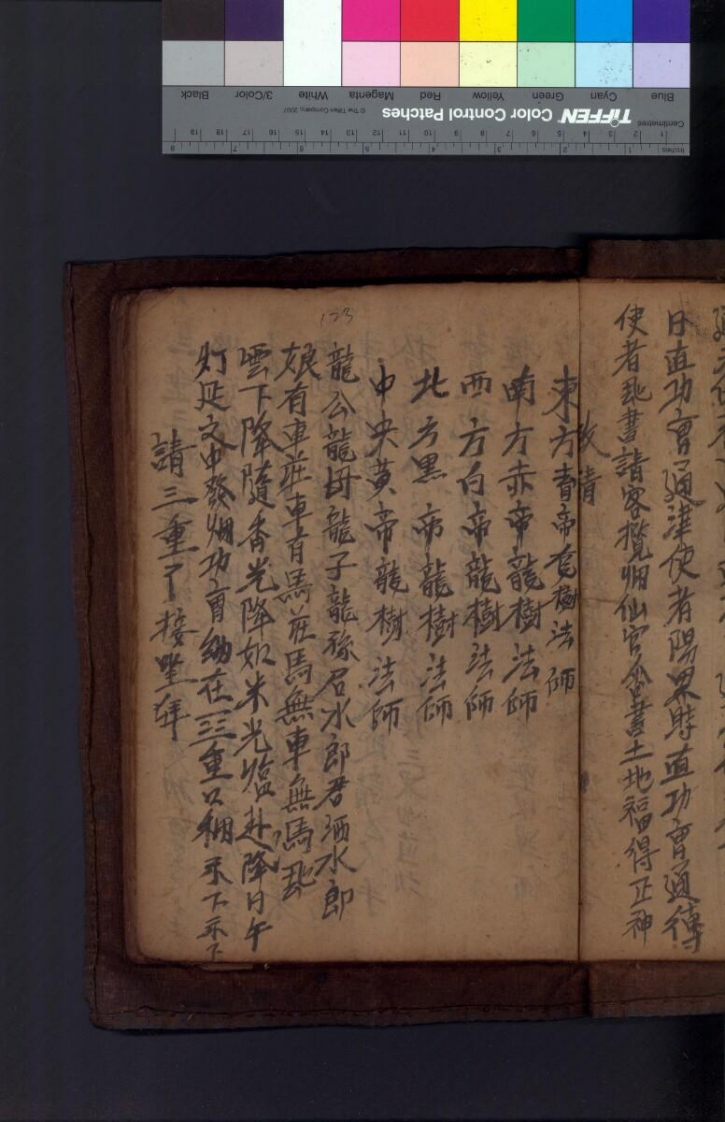 日直功曹通津使者陽界時直功曹通傳
使者飛書請客攬烟仙官金書土地福得正神
又請
東方青帝竜樹法師
南方赤帝龍樹法師
西方白帝龍樹法師
北方黑帝龍樹法師
中央黄帝龍樹法師
龍公龍母龍子龍孫君水郎君洒水郎
娘有車莊車有馬莊馬無車無馬飛
雲下降隨香光降如米光臨赴降日午
灯延文中發烟功曹納在三重口稱示下示下
請三重了接坐年
123
TIFFEN Color Control Patches
© The Tiffen Company, 2007
Centimetres
Inches
Blue Cyan Green Yellow Red Magenta White 3/Color Black
1 2 3 4 5 6 7 8 9 10 11 12 13 14 15 16 17 18 19
1 2 3 4 5 6 7 8